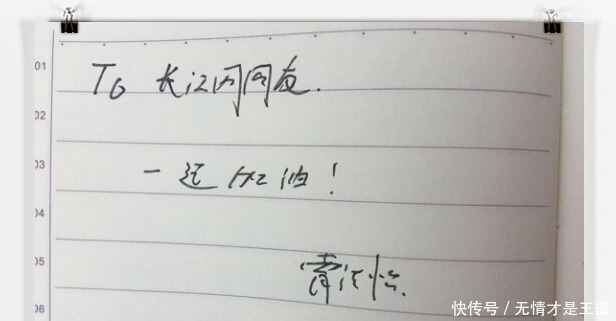 01
To 长江网网友.
02
03
一起加油！
04
05
06
快传号 / 无情才是王道